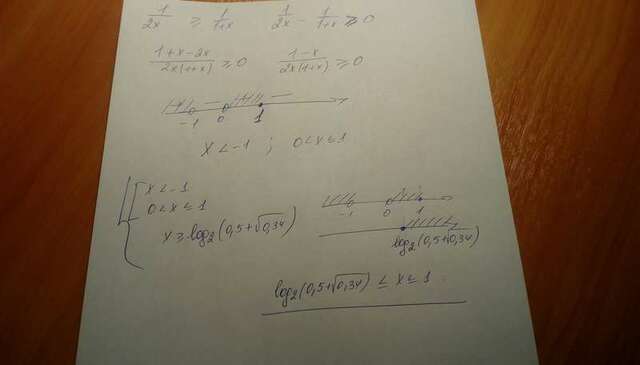 1/2x ≥ 1/1+x   1/2x - 1/1+x ≥ 0
1+x-2x/2x(1+x) ≥ 0   1-x/2x(1+x) ≥ 0
-1 0 1
x < -1 ; 0 < x ≤ 1
x < -1
0 < x ≤ 1
x ≥ log₂(0,5+√0,34)
-1 0 1
log₂(0,5+√0,34)
log₂(0,5+√0,34) ≤ x ≤ 1